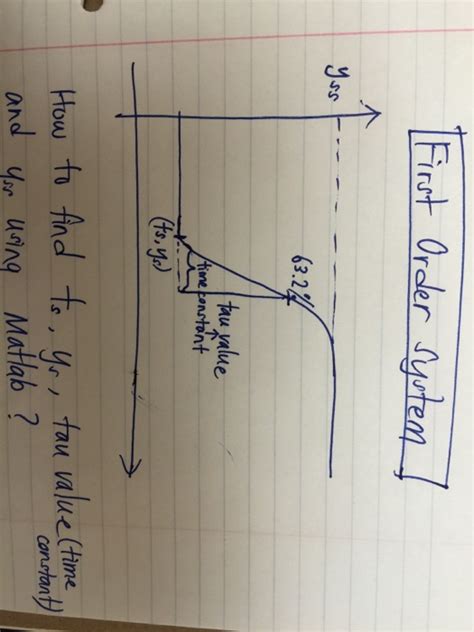 First Order System
yss
63.2%
tau value
time constant
(ts, ys)
How to find ts, ys, tau value (time constant)
and yss using Matlab?